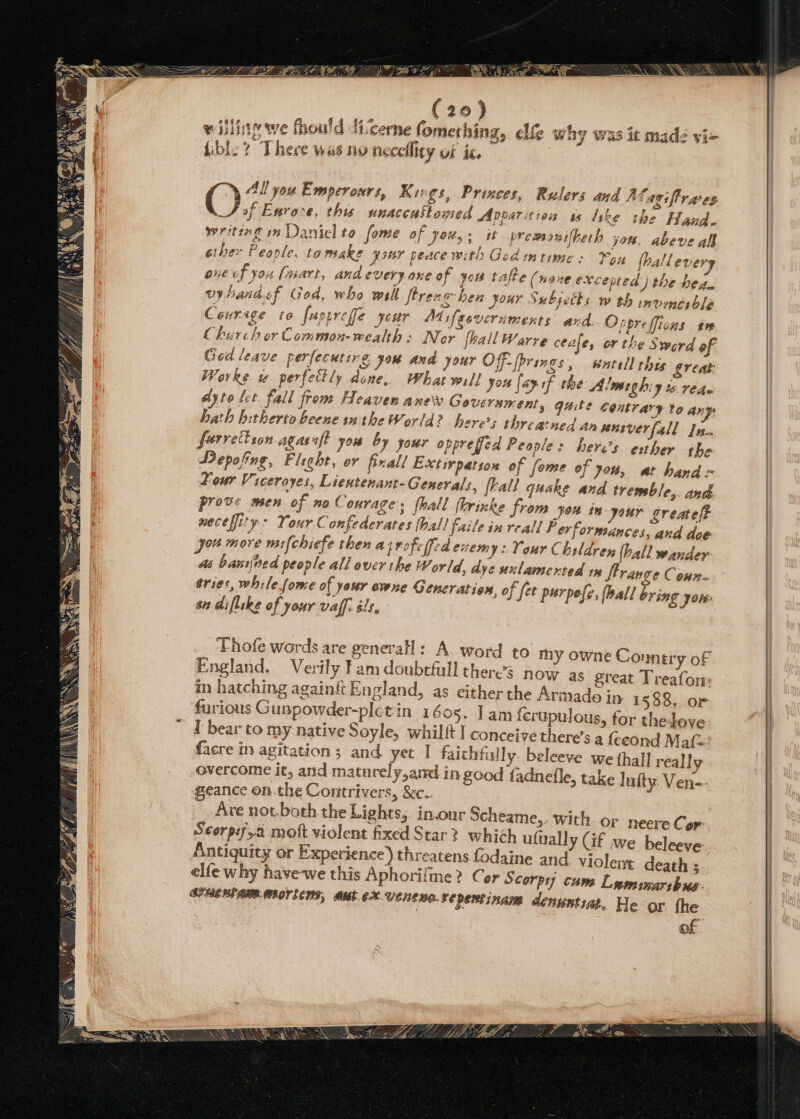 (20)
willing we ſhould diſcerne ſomething, elſe why was it made vi-
ſible? There was no neceſſity of it.
O All you Emperours, Kings, Princes, Rulers and Magiſtrates
of Europe, this unaccuſtomed Apparition is like the Hand-
writing in Daniel to ſome of you,; it premoniſheth you, above all
other People, to make your peace with God in time: You ſhall every
one of you ſmart, and every one of you taſte (none excepted) the hea-
vy hand of God, who will ſtrengthen your Subjects with invincible
Courage to ſuppreſſe your Miſgovernments and Oppreſſions in
Church or Common-wealth: Nor ſhall Warre ceaſe, or the Sword of
God leave perſecuting you and your Off-ſprings, untill this great
Worke is perfectly done. What will you ſay if the Almighty is rea-
dy to let fall from Heaven anew Government, quite contrary to any
hath hitherto beene in the World? here's threatned an univerſall In-
ſurrection againſt you by your oppreſſed People: here's either the
Depoſing, Flight, or finall Extirpation of ſome of you, at hand:
Your Viceroyes, Lieutenant-Generals, ſhall quake and tremble, and
prove men of no Courage; ſhall ſhrinke from you in your greateſt
neceſſity: Your Confederates ſhall faile in reall Performances, and doe
you more miſchiefe then a profeſſed enemy: Your Children ſhall wander
as baniſhed people all over the World, dye unlamented in ſtrange Coun-
tries, while ſome of your owne Generation, of ſet purpoſe, ſhall bring you
in diſlike of your vaſſ. ils.
Thoſe words are generall: A word to my owne Countrey of
England. Verily I am doubtfull there's now as great Treaſon:
in hatching againſt England, as either the Armado in 1588. or
furious Gunpowder-plot in 1605. I am ſcrupulous, for the love
I bear to my native Soyle, whilſt I conceive there's a ſecond Maſ-
ſacre in agitation; and yet I faithfully beleeve we ſhall really
overcome it, and maturely, and in good ſadneſſe, take luſty Ven-
geance on the Contrivers, &c.
Are not both the Lights, in our Scheame, with or neere Cor
Scorpij, a moſt violent fixed Star? which uſually (if we beleeve
Antiquity or Experience) threatens ſodaine and violent death;
elſe why have we this Aphoriſme? Cor Scorpij cum Luminaribus
aut ex veneno repentinam denuntiat. He or ſhe
of